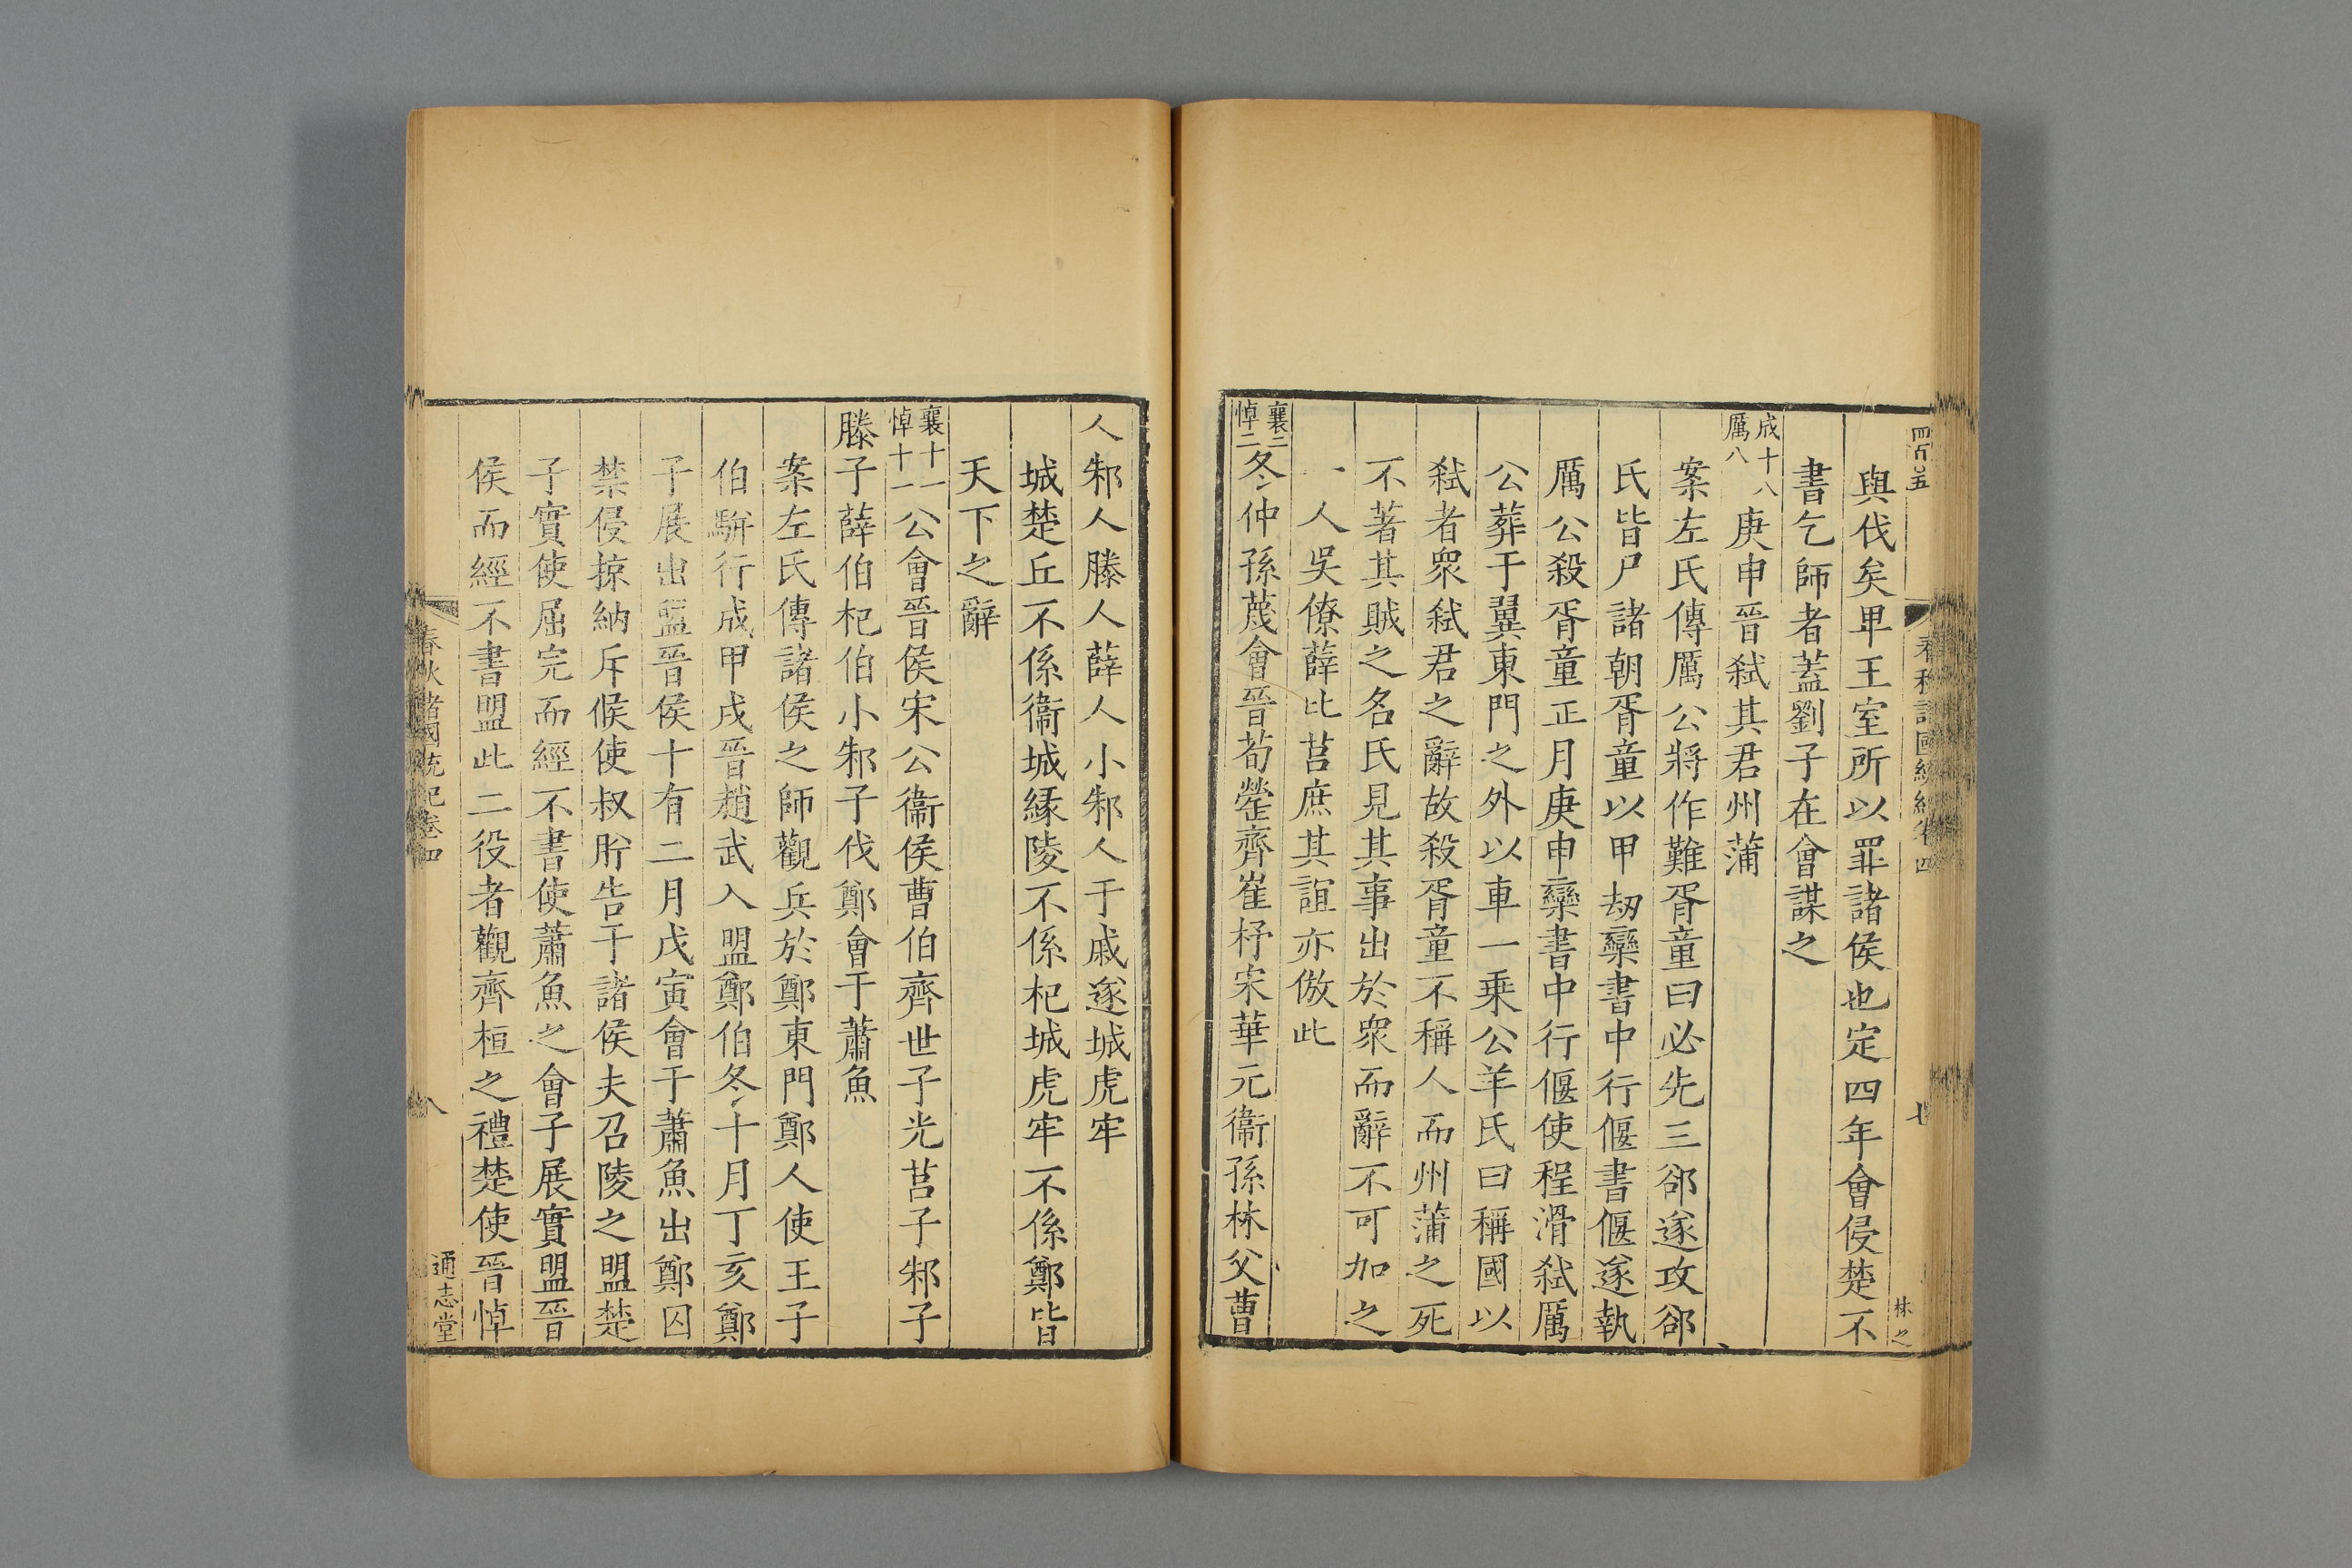 與伐矣卑王室所以罪諸侯也定四年會侵楚不
書乞師者蓋劉子在會謀之
成十八
厲八
庚申晉弑其君州蒲
案左氏傳厲公將作難胥童曰必先三郤遂攻郤
氏皆尸諸朝胥童以甲劫欒書中行偃書偃遂執
厲公殺胥童正月庚申欒書中行偃使程滑弑厲
公葬于翼東門之外以車一乗公羊氏曰稱國以
弑者衆弑君之辭故殺胥童不稱人而州蒲之死
不著其賊之名氏見其事出於衆而辭不可加之
一人吳僚薛比莒庶其誼亦倣此
襄二
悼二
冬仲孫蔑會晉荀罃齊崔杼宋華元衞孫林父曹
人邾人滕人薛人小邾人于戚遂城虎牢
城楚丘不係衞城緣陵不係杞城虎牢不係鄭皆
天下之辭
襄十一
悼十一
公會晉侯宋公衞侯曹伯齊世子光莒子邾子
滕子薛伯杞伯小邾子伐鄭會于蕭魚
案左氏傳諸侯之師觀兵於鄭東門鄭人使王子
伯駢行成甲戌晉趙武入盟鄭伯冬十月丁亥鄭
子展出盟晉侯十有二月戊寅會于蕭魚出鄭囚
禁侵掠納斥候使叔肸告于諸侯夫召陵之盟楚
子實使屈完而經不書使蕭魚之會子展實盟晉
侯而經不書盟此二役者觀齊桓之禮楚使晉悼
春秋諸國統紀卷四
八
通志堂